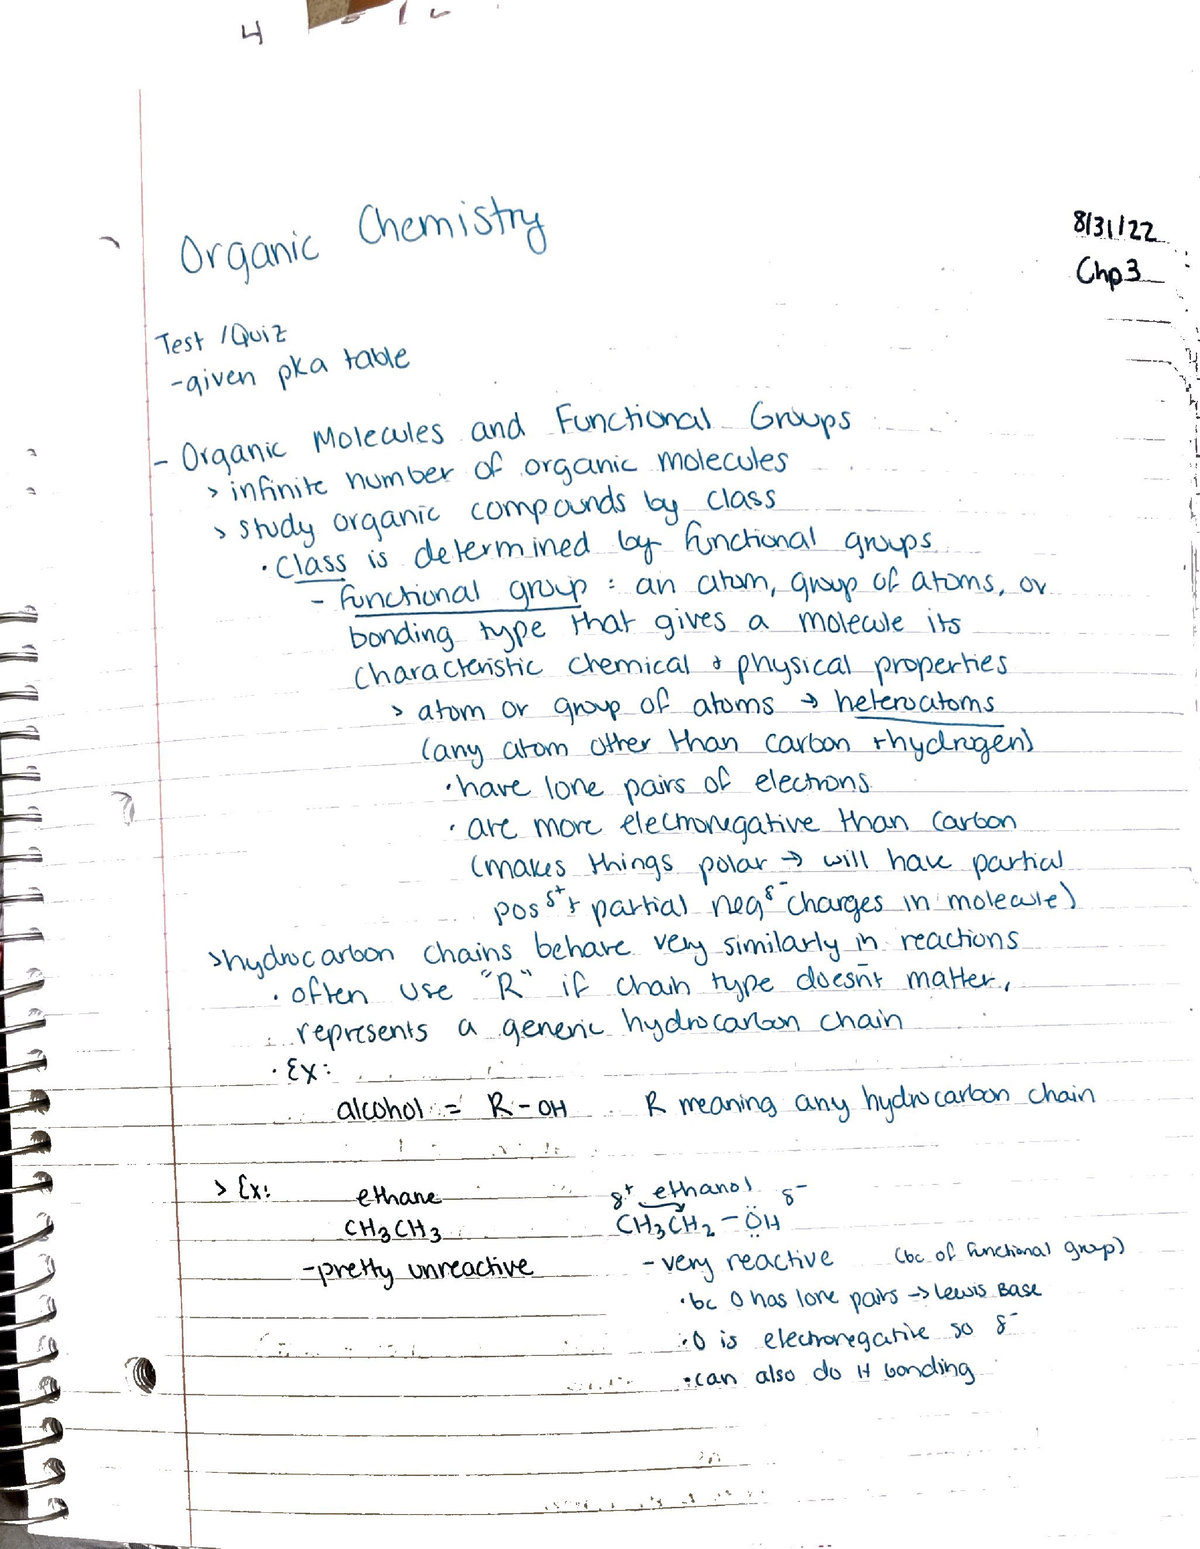 4
Organic Chemistry
8/31/22
Chp 3
Test / Quiz
- given pka table
- Organic Molecules and Functional Groups
> infinite number of organic molecules
> study organic compounds by class
• class is determined by functional groups
- functional group : an atom, group of atoms, or
bonding type that gives a molecule its
characteristic chemical & physical properties
> atom or group of atoms → heteroatoms
(any atom other than carbon + hydrogen)
• have lone pairs of electrons
• are more electronegative than carbon
(makes things polar → will have partial
pos δ+ + partial neg δ- charges in molecule)
> hydrocarbon chains behave very similarly in reactions
• often use "R" if chain type doesn't matter,
represents a generic hydrocarbon chain
• Ex:
alcohol = R-OH R meaning any hydrocarbon chain
> Ex: ethane δ+ ethanol δ-
CH3CH3 CH3CH2-ÖH
- pretty unreactive - very reactive (bc of functional group)
• bc O has lone pairs → Lewis Base
• O is electronegative so δ-
• can also do H bonding